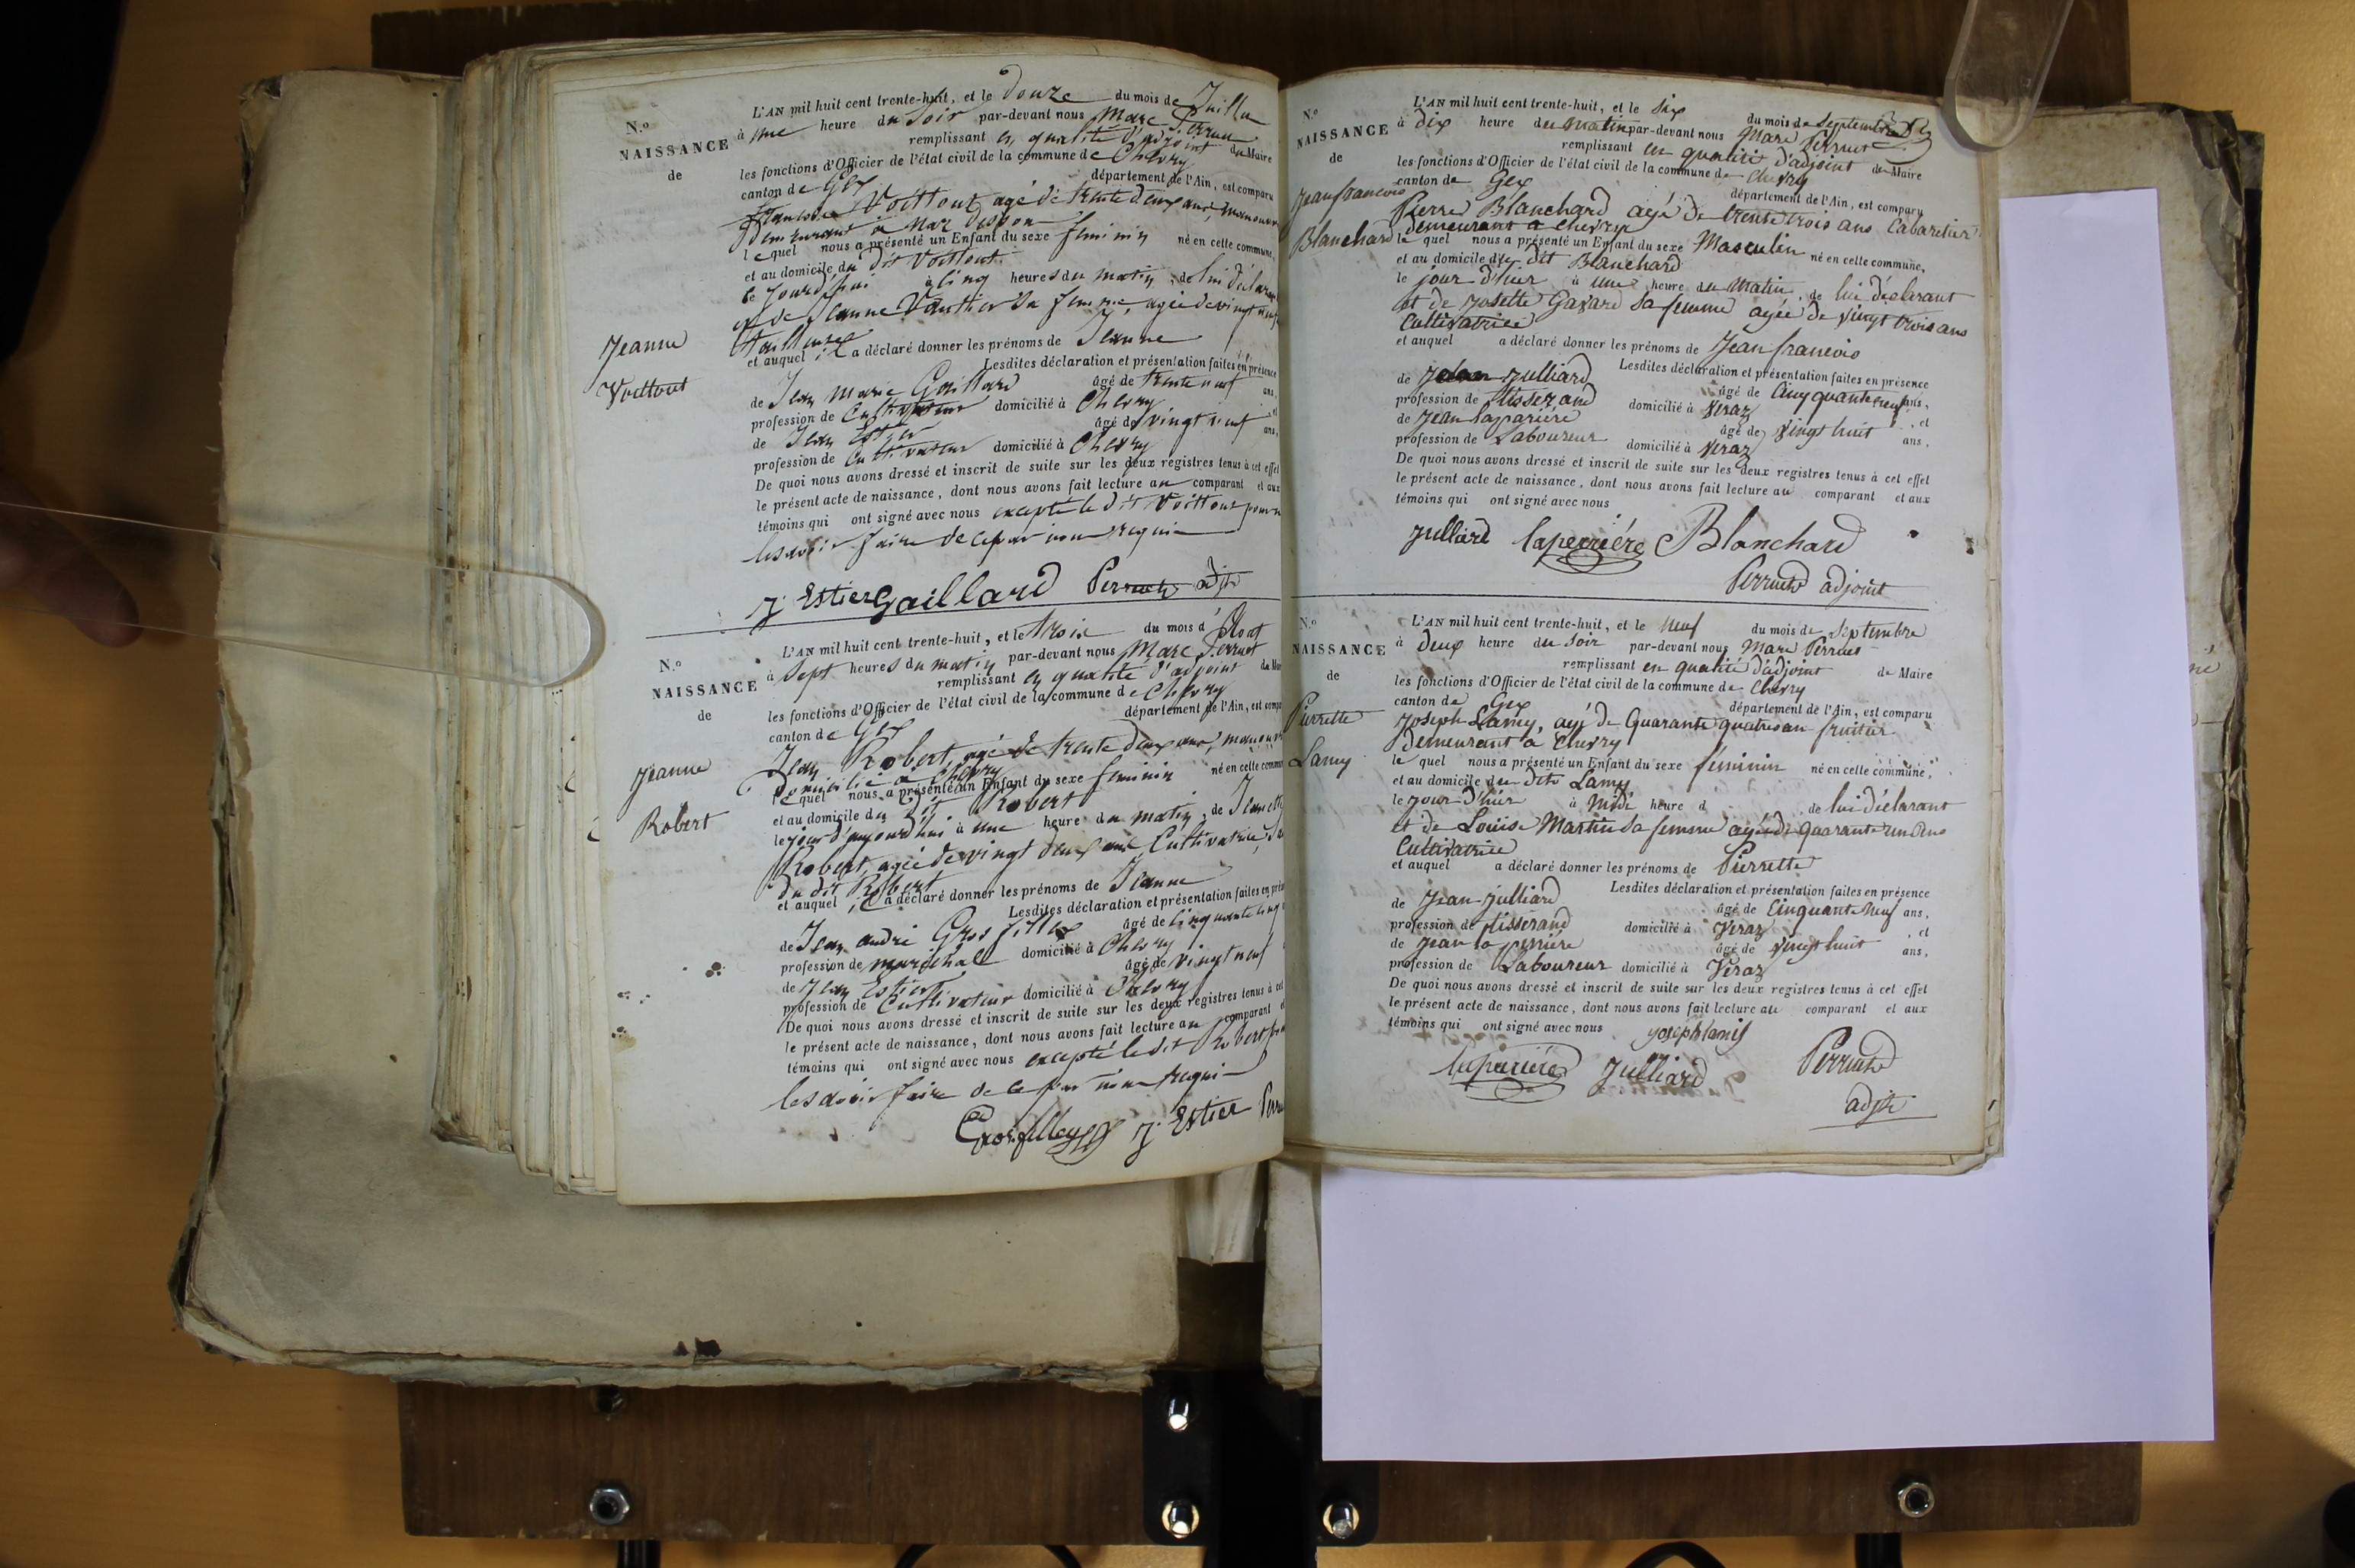 L'AN mil huit cent trente-huit, et le douze du mois de Juillet
N.º à une heure du Soir par-devant nous Marc Perruet
NAISSANCE remplissant en qualité d'adjoint du Maire
de les fonctions d'Officier de l'état civil de la commune de Chevry
canton de Gex département de l'Ain, est comparu
Voittout, agé de trente deux ans,
demeurant à
le quel nous a présenté un Enfant du sexe féminin né en cette commune,
et au domicile du dit Voittout
le jourd'hui à cinq heures du matin, de lui déclarant
et de Jeanne sa femme, agée de vingt neuf
Jeanne tailleuse
et auquel il a déclaré donner les prénoms de Jeanne
Voittout Lesdites déclaration et présentation faites en présence
de Jean Marie Gaillard âgé de trente neuf ans,
profession de Cultivateur domicilié à Chevry et
de Jean Estier âgé de vingt neuf ans,
profession de Cultivateur domicilié à Chevry
De quoi nous avons dressé et inscrit de suite sur les deux registres tenus à cet effet
le présent acte de naissance, dont nous avons fait lecture au comparant et aux
témoins qui ont signé avec nous excepté le dit Voittout pour ne
le savoir faire de ce par nous requis
J. Estier Gaillard Perruet adjt
L'AN mil huit cent trente-huit, et le trois du mois d'Aout
N.º à Sept heures du matin par-devant nous Marc Perruet
NAISSANCE remplissant en qualité d'adjoint du
de les fonctions d'Officier de l'état civil de la commune de Chevry
canton de Gex département de l'Ain, est
Jean Robert, agé de trente deux ans,
Jeanne Domicilié à Chevry
le quel nous a présenté un Enfant du sexe féminin né en cette
Robert et au domicile du Dit Robert
le jour d'aujourd'hui à une heure du matin, de
Robert, agée de vingt deux ans Cultivatrice,
du dit Robert
et auquel il a déclaré donner les prénoms de Jeanne
Lesdites déclaration et présentation faites en
de Jean andré Gros fillex âgé de Cinquante cinq
profession de maréchal domicilié à Chevry
de Jean Estier âgé de vingt neuf
profession de Cultivateur domicilié à Chevry
De quoi nous avons dressé et inscrit de suite sur les deux registres tenus à cet
le présent acte de naissance, dont nous avons fait lecture au comparant
témoins qui ont signé avec nous excepté le dit Robert
le savoir faire de ce par nous requis
Grosfilley J. Estier
L'AN mil huit cent trente-huit, et le six du mois de Septembre
N.º à dix heure du matin par-devant nous Marc Perruet
NAISSANCE remplissant en qualité d'adjoint de Maire
de les fonctions d'Officier de l'état civil de la commune de Chevry
canton de Gex département de l'Ain, est comparu
Jeanfrancois Pierre Blanchard agé de trente trois ans Cabaretier
demeurant à Chevry
Blanchard le quel nous a présenté un Enfant du sexe Masculin né en cette commune,
et au domicile du dit Blanchard
le jour d'hier à une heure du Matin, de lui déclarant
et de Josette Gavard sa femme agée de vingt trois ans
Cultivatrice
et auquel a déclaré donner les prénoms de Jeanfrancois
Lesdites déclaration et présentation faites en présence
de Jean Julliard âgé de Cinquante neuf ans,
profession de tisserand domicilié à Veraz et
de Jean laparière âgé de vingt huit ans,
profession de Laboureur domicilié à Veraz
De quoi nous avons dressé et inscrit de suite sur les deux registres tenus à cet effet
le présent acte de naissance, dont nous avons fait lecture au comparant et aux
témoins qui ont signé avec nous
Julliard laperriére Blanchard
Perruet adjoint
L'AN mil huit cent trente-huit, et le neuf du mois de Septembre
N.º à deux heure du Soir par-devant nous Marc Perruet
NAISSANCE remplissant en qualité d'adjoint de Maire
de les fonctions d'Officier de l'état civil de la commune de Chevry
canton de Gex département de l'Ain, est comparu
Pierrette Joseph Lamy, agé de Quarante quatre an fruitier
demeurant à Chevry
Lamy le quel nous a présenté un Enfant du sexe féminin né en cette commune,
et au domicile du dit Lamy
le jour d'hier à Midi heure d de lui déclarant
et de Louise Martin sa femme agée de quarante un ans
Cultivatrice
et auquel a déclaré donner les prénoms de Pierrette
Lesdites déclaration et présentation faites en présence
de Jean Julliard âgé de Cinquante Neuf ans,
profession de tisserand domicilié à Veraz et
de Jean la perriére âgé de vingt huit ans,
profession de Laboureur domicilié à Veraz
De quoi nous avons dressé et inscrit de suite sur les deux registres tenus à cet effet
le présent acte de naissance, dont nous avons fait lecture au comparant et aux
témoins qui ont signé avec nous Joseph lamy
laperiére Julliard Perruet
adjt